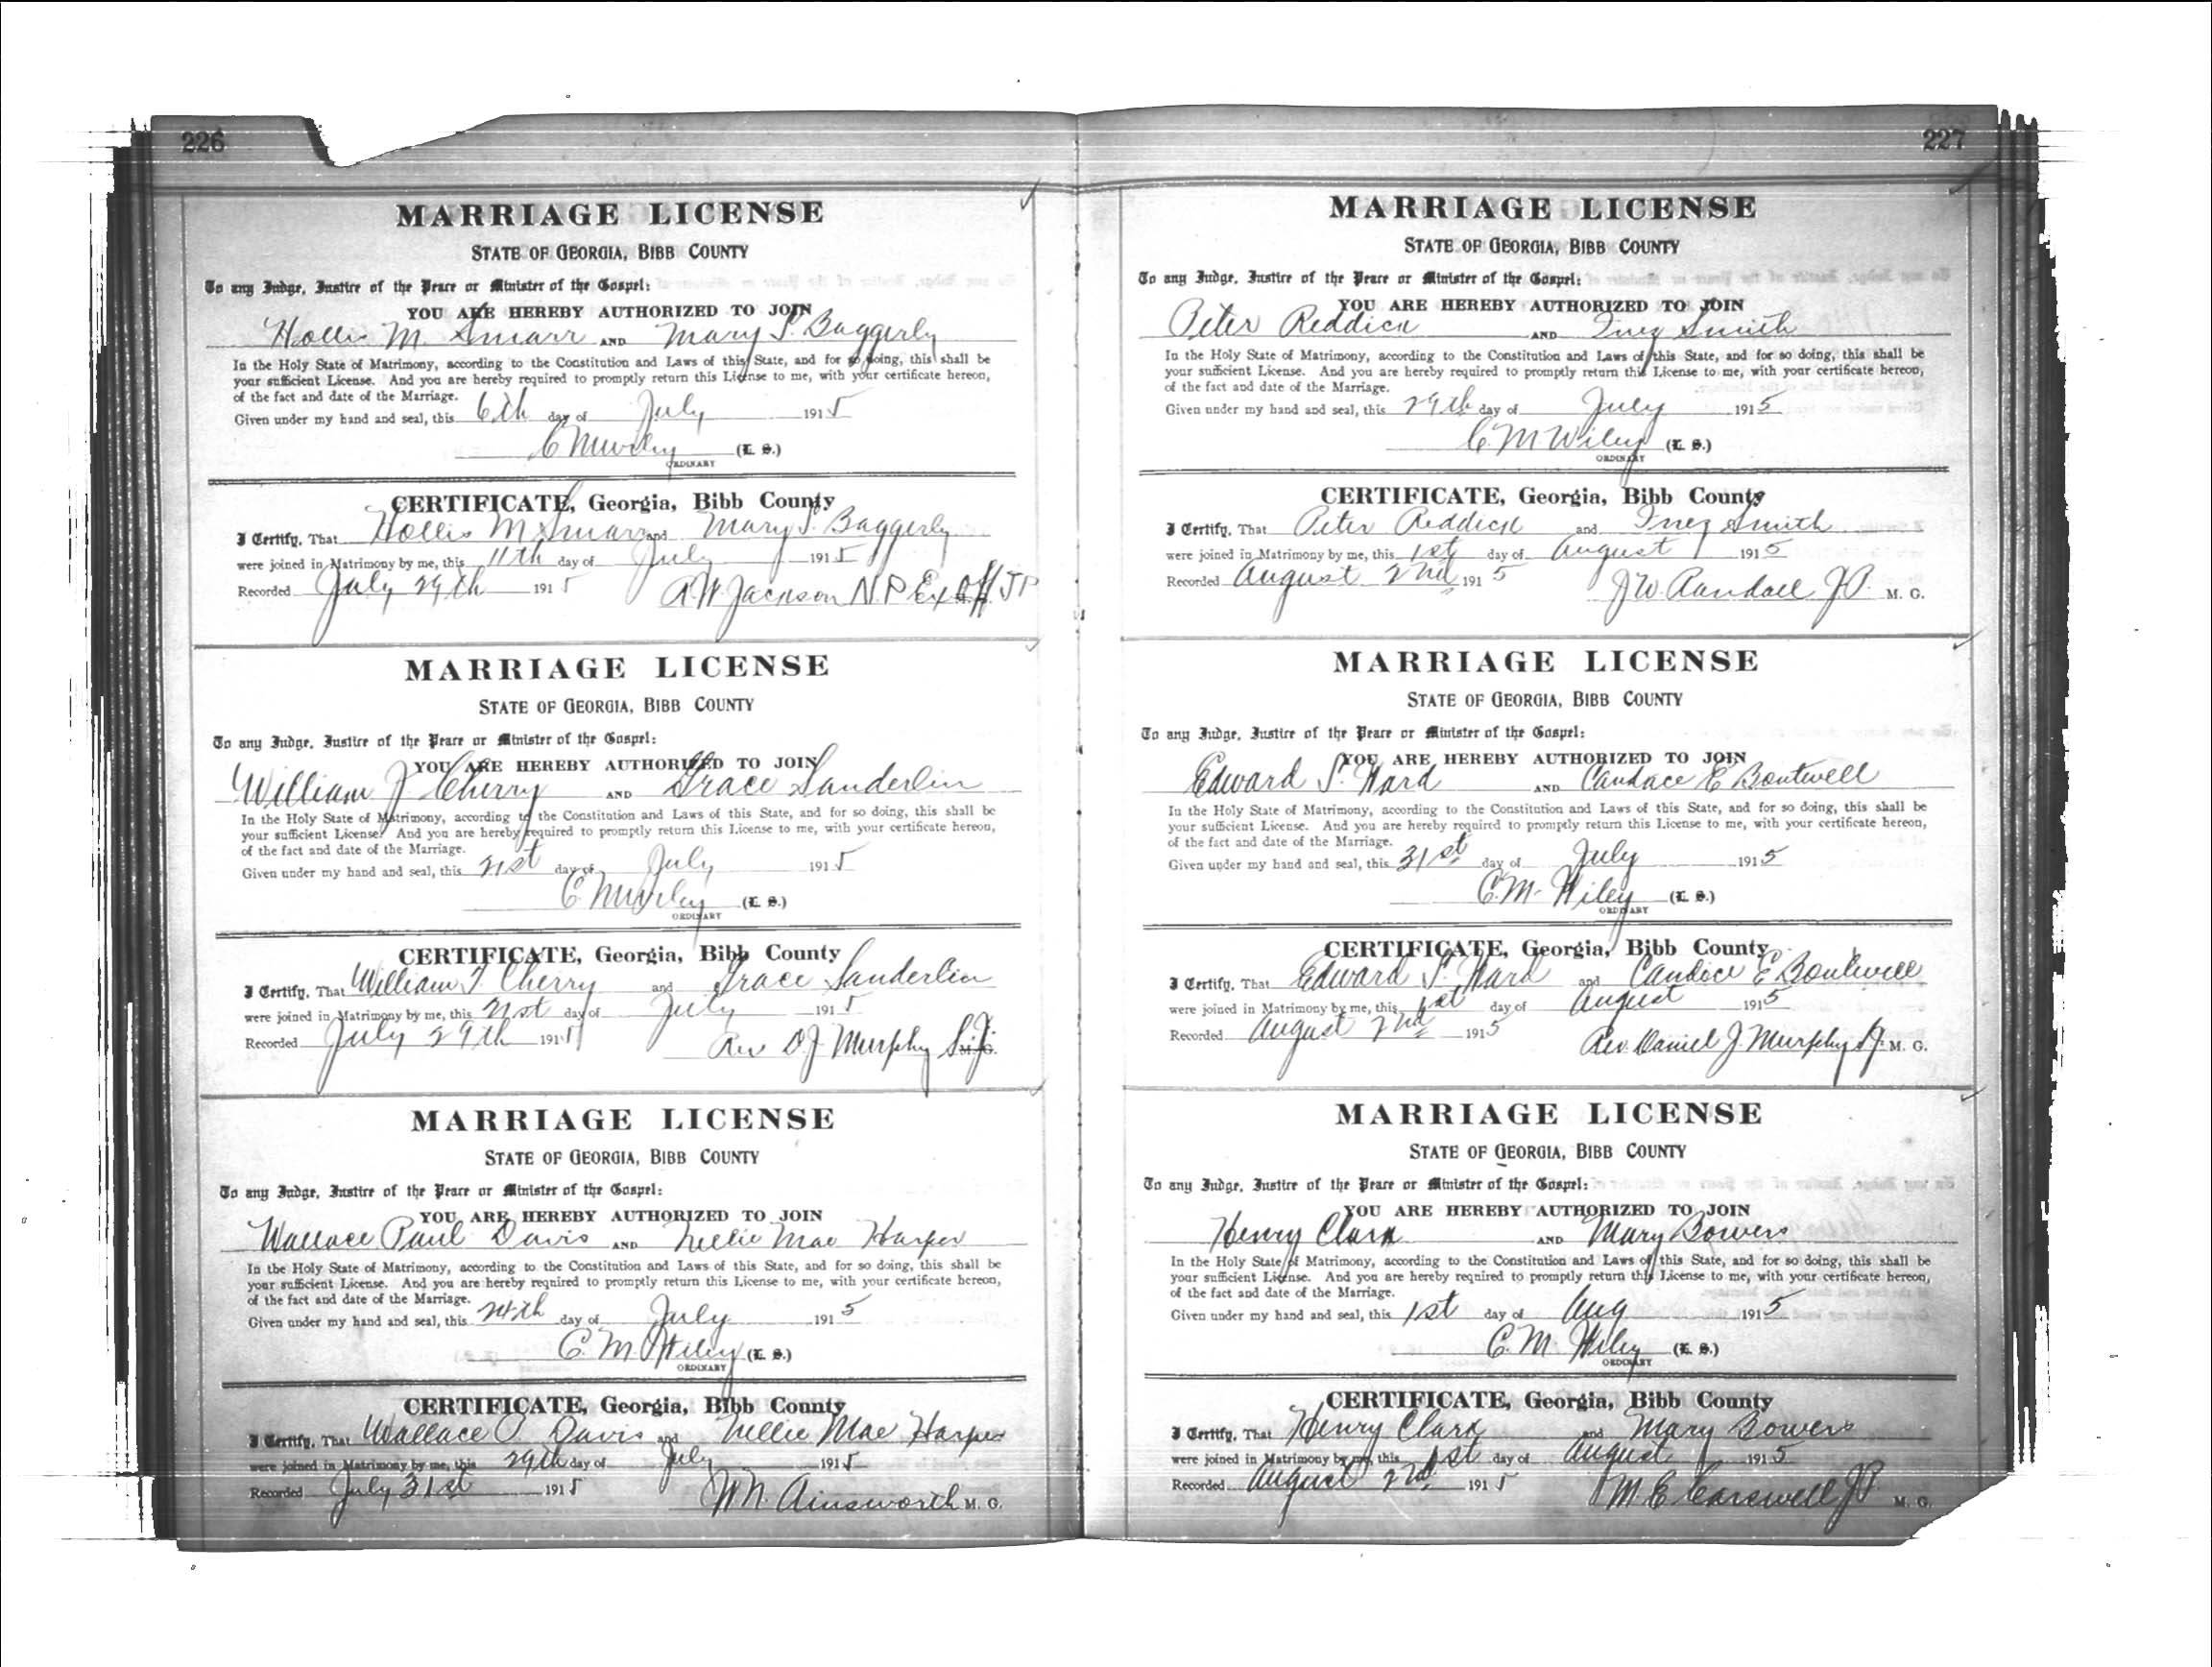 226
MARRIAGE LICENSE
STATE OF GEORGIA, BIBB COUNTY
To any Judge, Justice of the Peace or Minister of the Gospel:
YOU ARE HEREBY AUTHORIZED TO JOIN
Hollis M. Smarr AND Mary S. Baggerly
In the Holy State of Matrimony, according to the Constitution and Laws of this State, and for so doing, this shall be
your sufficient License. And you are hereby required to promptly return this License to me, with your certificate hereon,
of the fact and date of the Marriage.
Given under my hand and seal, this 6th day of July 1915
C M Wiley (L. S.)
ORDINARY
CERTIFICATE, Georgia, Bibb County
I Certify, That Hollis M Smarr and Mary S. Baggerly
were joined in Matrimony by me, this 11th day of July 1915
Recorded July 29th 1915 A. W. Jackson N. P. Ex Off. J P
MARRIAGE LICENSE
STATE OF GEORGIA, BIBB COUNTY
To any Judge, Justice of the Peace or Minister of the Gospel:
YOU ARE HEREBY AUTHORIZED TO JOIN
William J. Cherry AND Grace Sanderlin
In the Holy State of Matrimony, according to the Constitution and Laws of this State, and for so doing, this shall be
your sufficient License. And you are hereby required to promptly return this License to me, with your certificate hereon,
of the fact and date of the Marriage.
Given under my hand and seal, this 21st day of July 1915
C M Wiley (L. S.)
ORDINARY
CERTIFICATE, Georgia, Bibb County
I Certify, That William J. Cherry and Grace Sanderlin
were joined in Matrimony by me, this 21st day of July 1915
Recorded July 29th 1915 Rev D J Murphy S. J. M. G.
MARRIAGE LICENSE
STATE OF GEORGIA, BIBB COUNTY
To any Judge, Justice of the Peace or Minister of the Gospel:
YOU ARE HEREBY AUTHORIZED TO JOIN
Wallace Paul Davis AND Nellie Mae Harper
In the Holy State of Matrimony, according to the Constitution and Laws of this State, and for so doing, this shall be
your sufficient License. And you are hereby required to promptly return this License to me, with your certificate hereon,
of the fact and date of the Marriage.
Given under my hand and seal, this 24th day of July 1915
C. M. Wiley (L. S.)
ORDINARY
CERTIFICATE, Georgia, Bibb County
I Certify, That Wallace P. Davis and Nellie Mae Harper
were joined in Matrimony by me, this 29th day of July 1915
Recorded July 31st 1915 W. N. Ainsworth M. G.
227
MARRIAGE LICENSE
STATE OF GEORGIA, BIBB COUNTY
To any Judge, Justice of the Peace or Minister of the Gospel:
YOU ARE HEREBY AUTHORIZED TO JOIN
Peter Reddick AND Inez Smith
In the Holy State of Matrimony, according to the Constitution and Laws of this State, and for so doing, this shall be
your sufficient License. And you are hereby required to promptly return this License to me, with your certificate hereon,
of the fact and date of the Marriage.
Given under my hand and seal, this 29th day of July 1915
C. M Wiley (L. S.)
ORDINARY
CERTIFICATE, Georgia, Bibb County
I Certify, That Peter Reddick and Inez Smith
were joined in Matrimony by me, this 1st day of August 1915
Recorded August 2nd 1915 J. W. Randall J. P. M. G.
MARRIAGE LICENSE
STATE OF GEORGIA, BIBB COUNTY
To any Judge, Justice of the Peace or Minister of the Gospel:
YOU ARE HEREBY AUTHORIZED TO JOIN
Edward S. Ward AND Candace E Boutwell
In the Holy State of Matrimony, according to the Constitution and Laws of this State, and for so doing, this shall be
your sufficient License. And you are hereby required to promptly return this License to me, with your certificate hereon,
of the fact and date of the Marriage.
Given under my hand and seal, this 31st day of July 1915
C. M. Wiley (L. S.)
ORDINARY
CERTIFICATE, Georgia, Bibb County
I Certify, That Edward S. Ward and Candice E Boutwell
were joined in Matrimony by me, this 1st day of August 1915
Recorded August 2nd 1915 Rev. Daniel J. Murphy S. J. M. G.
MARRIAGE LICENSE
STATE OF GEORGIA, BIBB COUNTY
To any Judge, Justice of the Peace or Minister of the Gospel:
YOU ARE HEREBY AUTHORIZED TO JOIN
Henry Clark AND Mary Bowers
In the Holy State of Matrimony, according to the Constitution and Laws of this State, and for so doing, this shall be
your sufficient License. And you are hereby required to promptly return this License to me, with your certificate hereon,
of the fact and date of the Marriage.
Given under my hand and seal, this 1st day of Aug 1915
C. M. Wiley (L. S.)
ORDINARY
CERTIFICATE, Georgia, Bibb County
I Certify, That Henry Clark and Mary Bowers
were joined in Matrimony by me, this 1st day of August 1915
Recorded August 2nd 1915 M. E Carswell J. P. M. G.